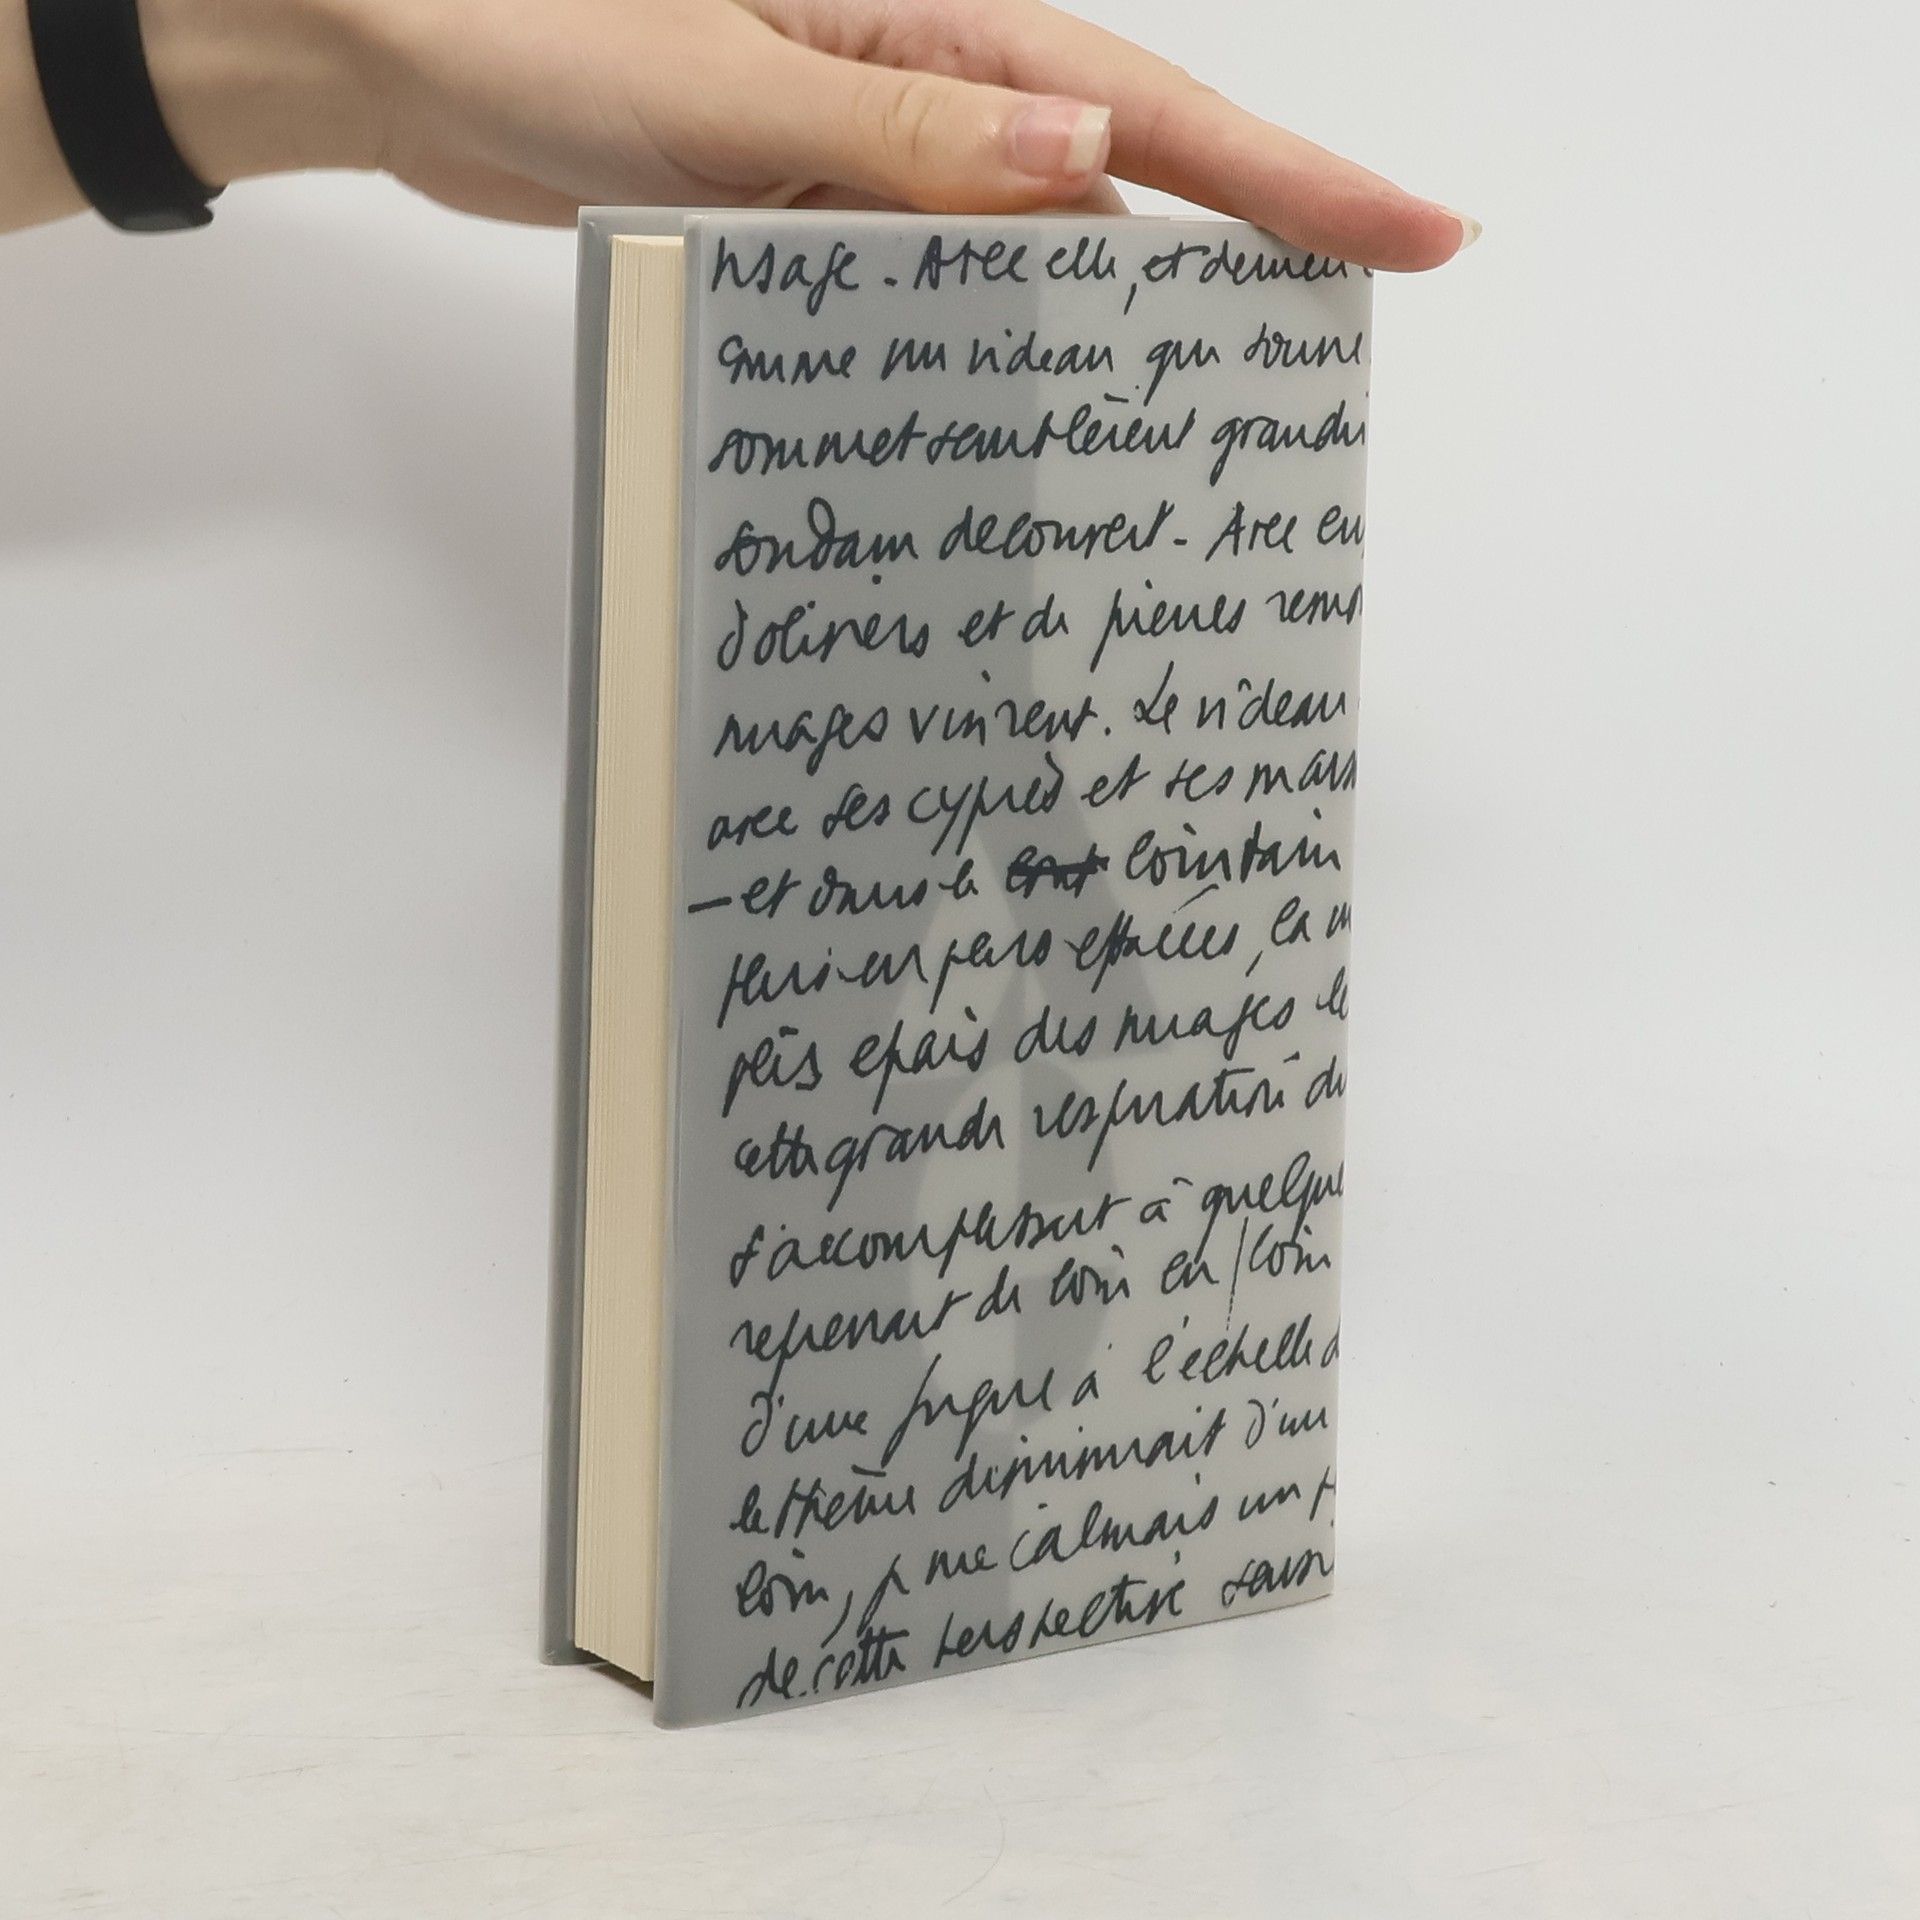 visage. Avec elle, et derrière
comme un rideau qui s'ouvre
sommet semblèrent grandir
soudain découvert. Avec eux
d'oliviers et de pierres
nuages vinrent. Le rideau
avec ses cyprès et ses
— et dans le lointain
plusieurs effacées, la
plus épais des nuages
cette grande respiration du
s'accomplissait à quelque
reprenait de loin en loin
d'une fugue à l'échelle
le thème diminuait d'un
loin, je me calmais un
de cette perspective sans